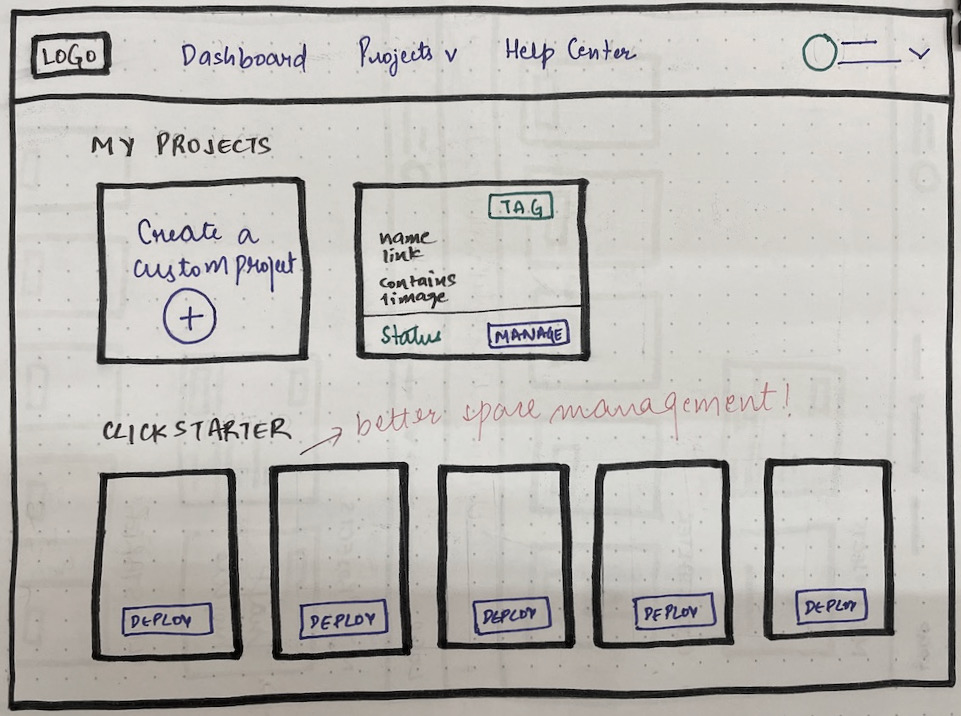 LOGO
Dashboard
Projects v
Help Center
MY PROJECTS
Create a
custom project
+
TAG
name
link
contains
1 image
Status
MANAGE
CLICKSTARTER
better space management!
DEPLOY
DEPLOY
DEPLOY
DEPLOY
DEPLOY